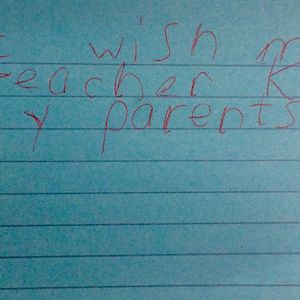 I wish m
teacher K
y parents